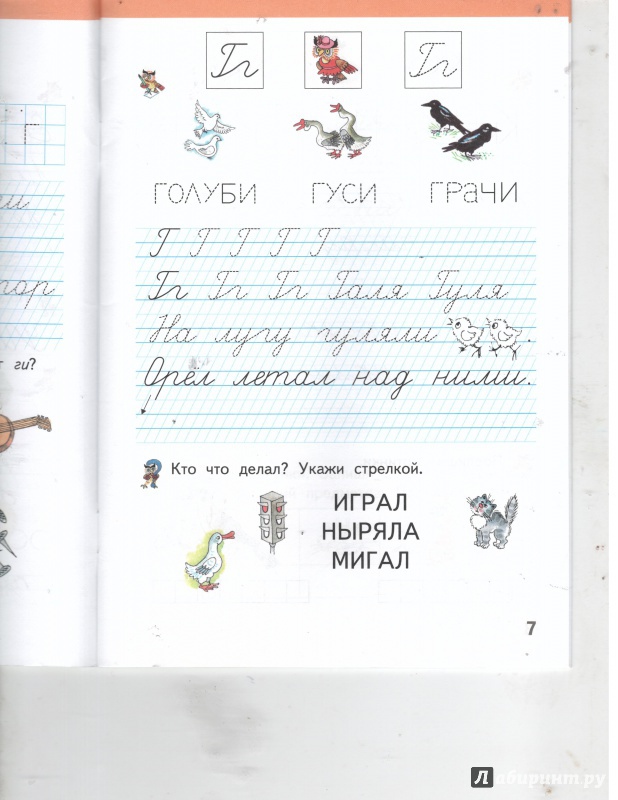 Гг Гг
ГОЛУБИ ГУСИ ГРАЧИ
Г Г Г Г Г
Гг Гг Гг Галя Гуля
На лугу гуляли .
Орёл летал над ними.
ги?
Кто что делал? Укажи стрелкой.
ИГРАЛ
НЫРЯЛА
МИГАЛ
7
Лабиринт.ру